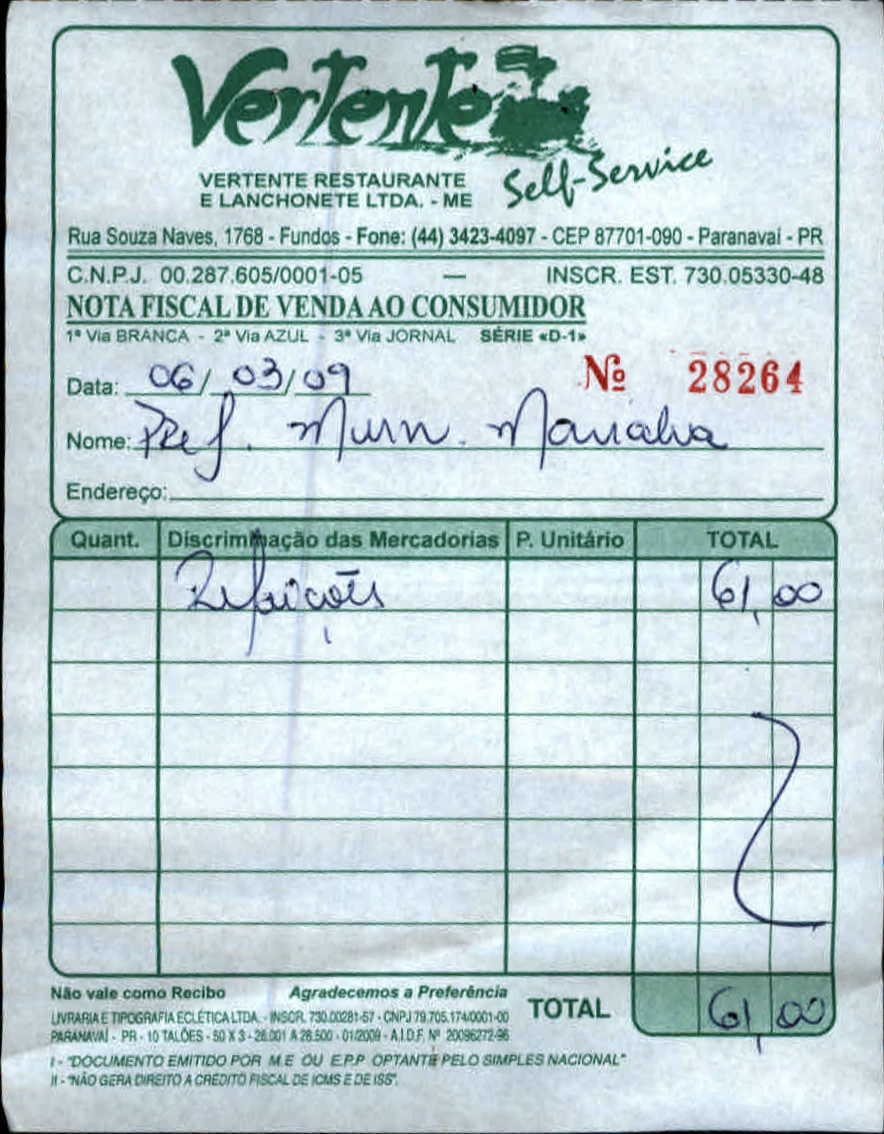 Vertente
Self-Service
VERTENTE RESTAURANTE
E LANCHONETE LTDA. - ME
Rua Souza Naves, 1768 - Fundos - Fone: (44) 3423-4097 - CEP 87701-090 - Paranavaí - PR
C.N.P.J. 00.287.605/0001-05 — INSCR. EST. 730.05330-48
NOTA FISCAL DE VENDA AO CONSUMIDOR
1ª Via BRANCA - 2ª Via AZUL - 3ª Via JORNAL SÉRIE «D-1»
Data: 06/03/09 Nº 28264
Nome: Pref. Mun.
Endereço:
Quant. Discriminação das Mercadorias P. Unitário TOTAL
Refeições 61,00
Não vale como Recibo Agradecemos a Preferência
TOTAL 61,00
LIVRARIA E TIPOGRAFIA ECLÉTICA LTDA. - INSCR. 730.00281-57 - CNPJ 79.705.174/0001-00
PARANAVAÍ - PR - 10 TALÕES - 50 X 3 - 28.001 A 28.500 - 01/2009 - A.I.D.F. Nº 20096272-96
I - "DOCUMENTO EMITIDO POR M.E OU E.P.P OPTANTE PELO SIMPLES NACIONAL"
II - "NÃO GERA DIREITO A CRÉDITO FISCAL DE ICMS E DE ISS".